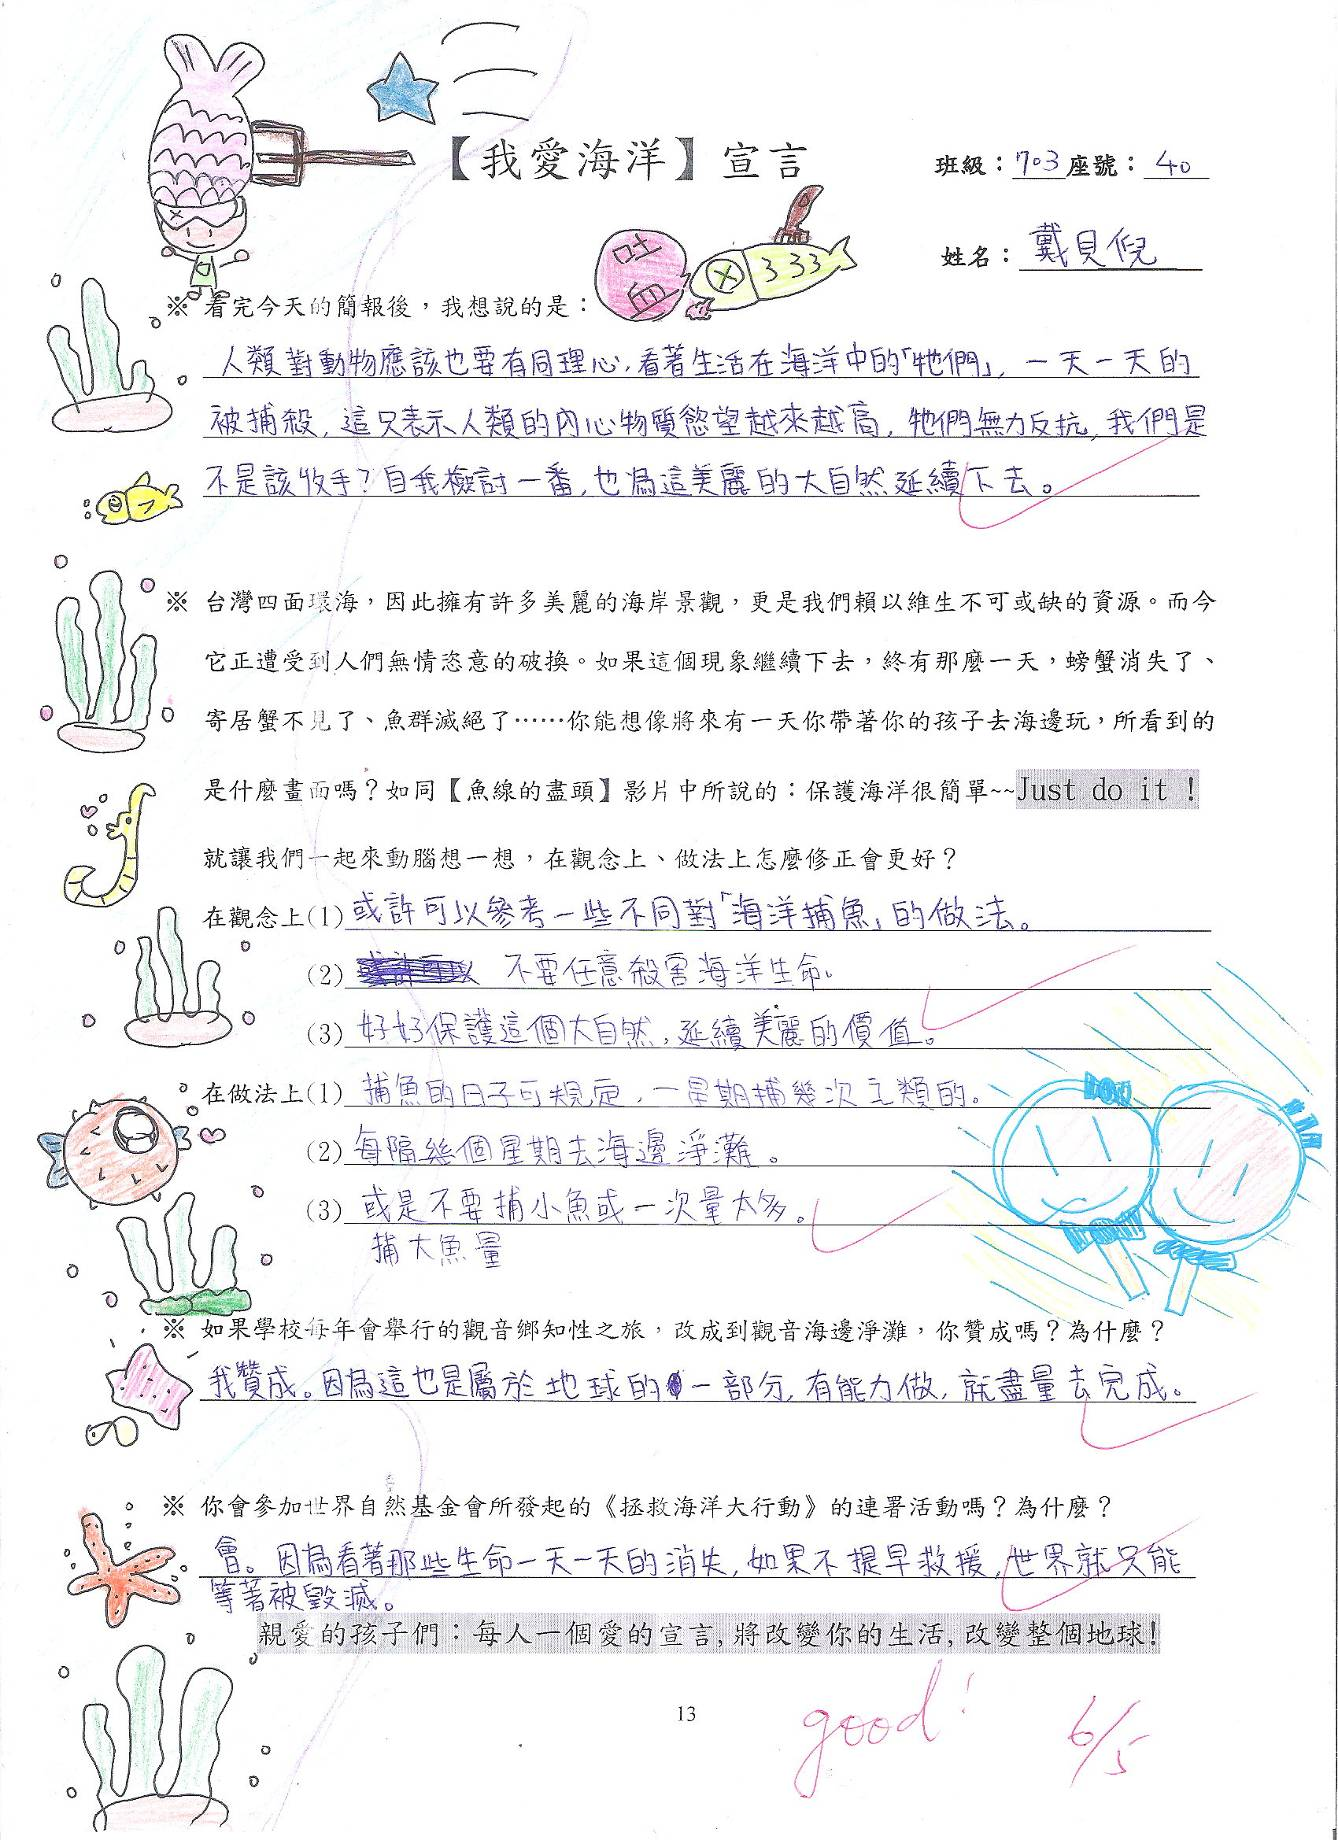 【我愛海洋】宣言
班級：703座號：40
姓名：戴貝倪
吐血
333
※ 看完今天的簡報後，我想說的是：
人類對動物應該也要有同理心，看著生活在海洋中的「牠們」，一天一天的
被捕殺，這只表示人類的內心物質慾望越來越高，牠們無力反抗，我們是
不是該收手？自我檢討一番，也為這美麗的大自然延續下去。
※ 台灣四面環海，因此擁有許多美麗的海岸景觀，更是我們賴以維生不可或缺的資源。而今
它正遭受到人們無情恣意的破換。如果這個現象繼續下去，終有那麼一天，螃蟹消失了、
寄居蟹不見了、魚群滅絕了……你能想像將來有一天你帶著你的孩子去海邊玩，所看到的
是什麼畫面嗎？如同【魚線的盡頭】影片中所說的：保護海洋很簡單~~Just do it !
就讓我們一起來動腦想一想，在觀念上、做法上怎麼修正會更好？
在觀念上(1) 或許可以參考一些不同對「海洋捕魚」的做法。
(2) 不要任意殺害海洋生命。
(3) 好好保護這個大自然，延續美麗的價值。
在做法上(1) 捕魚的日子可規定，一星期捕幾次之類的。
(2) 每隔幾個星期去海邊淨灘。
(3) 或是不要捕小魚或一次量太多。
捕大魚量
※ 如果學校每年會舉行的觀音鄉知性之旅，改成到觀音海邊淨灘，你贊成嗎？為什麼？
我贊成。因為這也是屬於地球的一部分，有能力做，就盡量去完成。
※ 你會參加世界自然基金會所發起的《拯救海洋大行動》的連署活動嗎？為什麼？
會。因為看著那些生命一天一天的消失，如果不提早救援，世界就只能
等著被毀滅。
親愛的孩子們：每人一個愛的宣言，將改變你的生活，改變整個地球!
13
good!
6/5